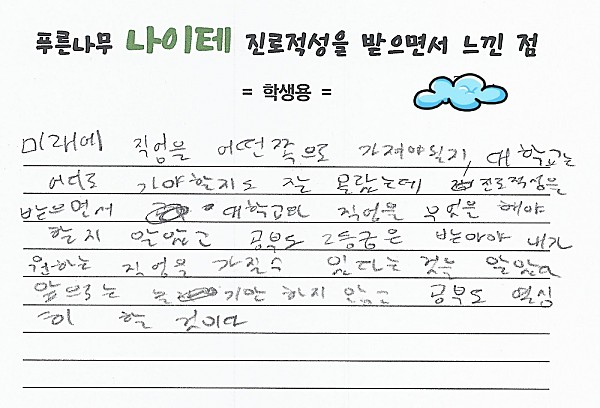 푸른나무 나이테 진로적성을 받으면서 느낀 점
= 학생용 =
미래에 직업을 어떤쪽으로 가져야될지, 대학교는
어디로 가야할지도 잘 몰랐는데 진로적성을
받으면서 대학교와 직업을 무엇을 해야
할지 알았고 공부도 2등급은 받아야 내가
원하는 직업을 가질수 있다는 것을 알았다
앞으로는 놀기만 하지 않고 공부도 열심
히 할 것이다